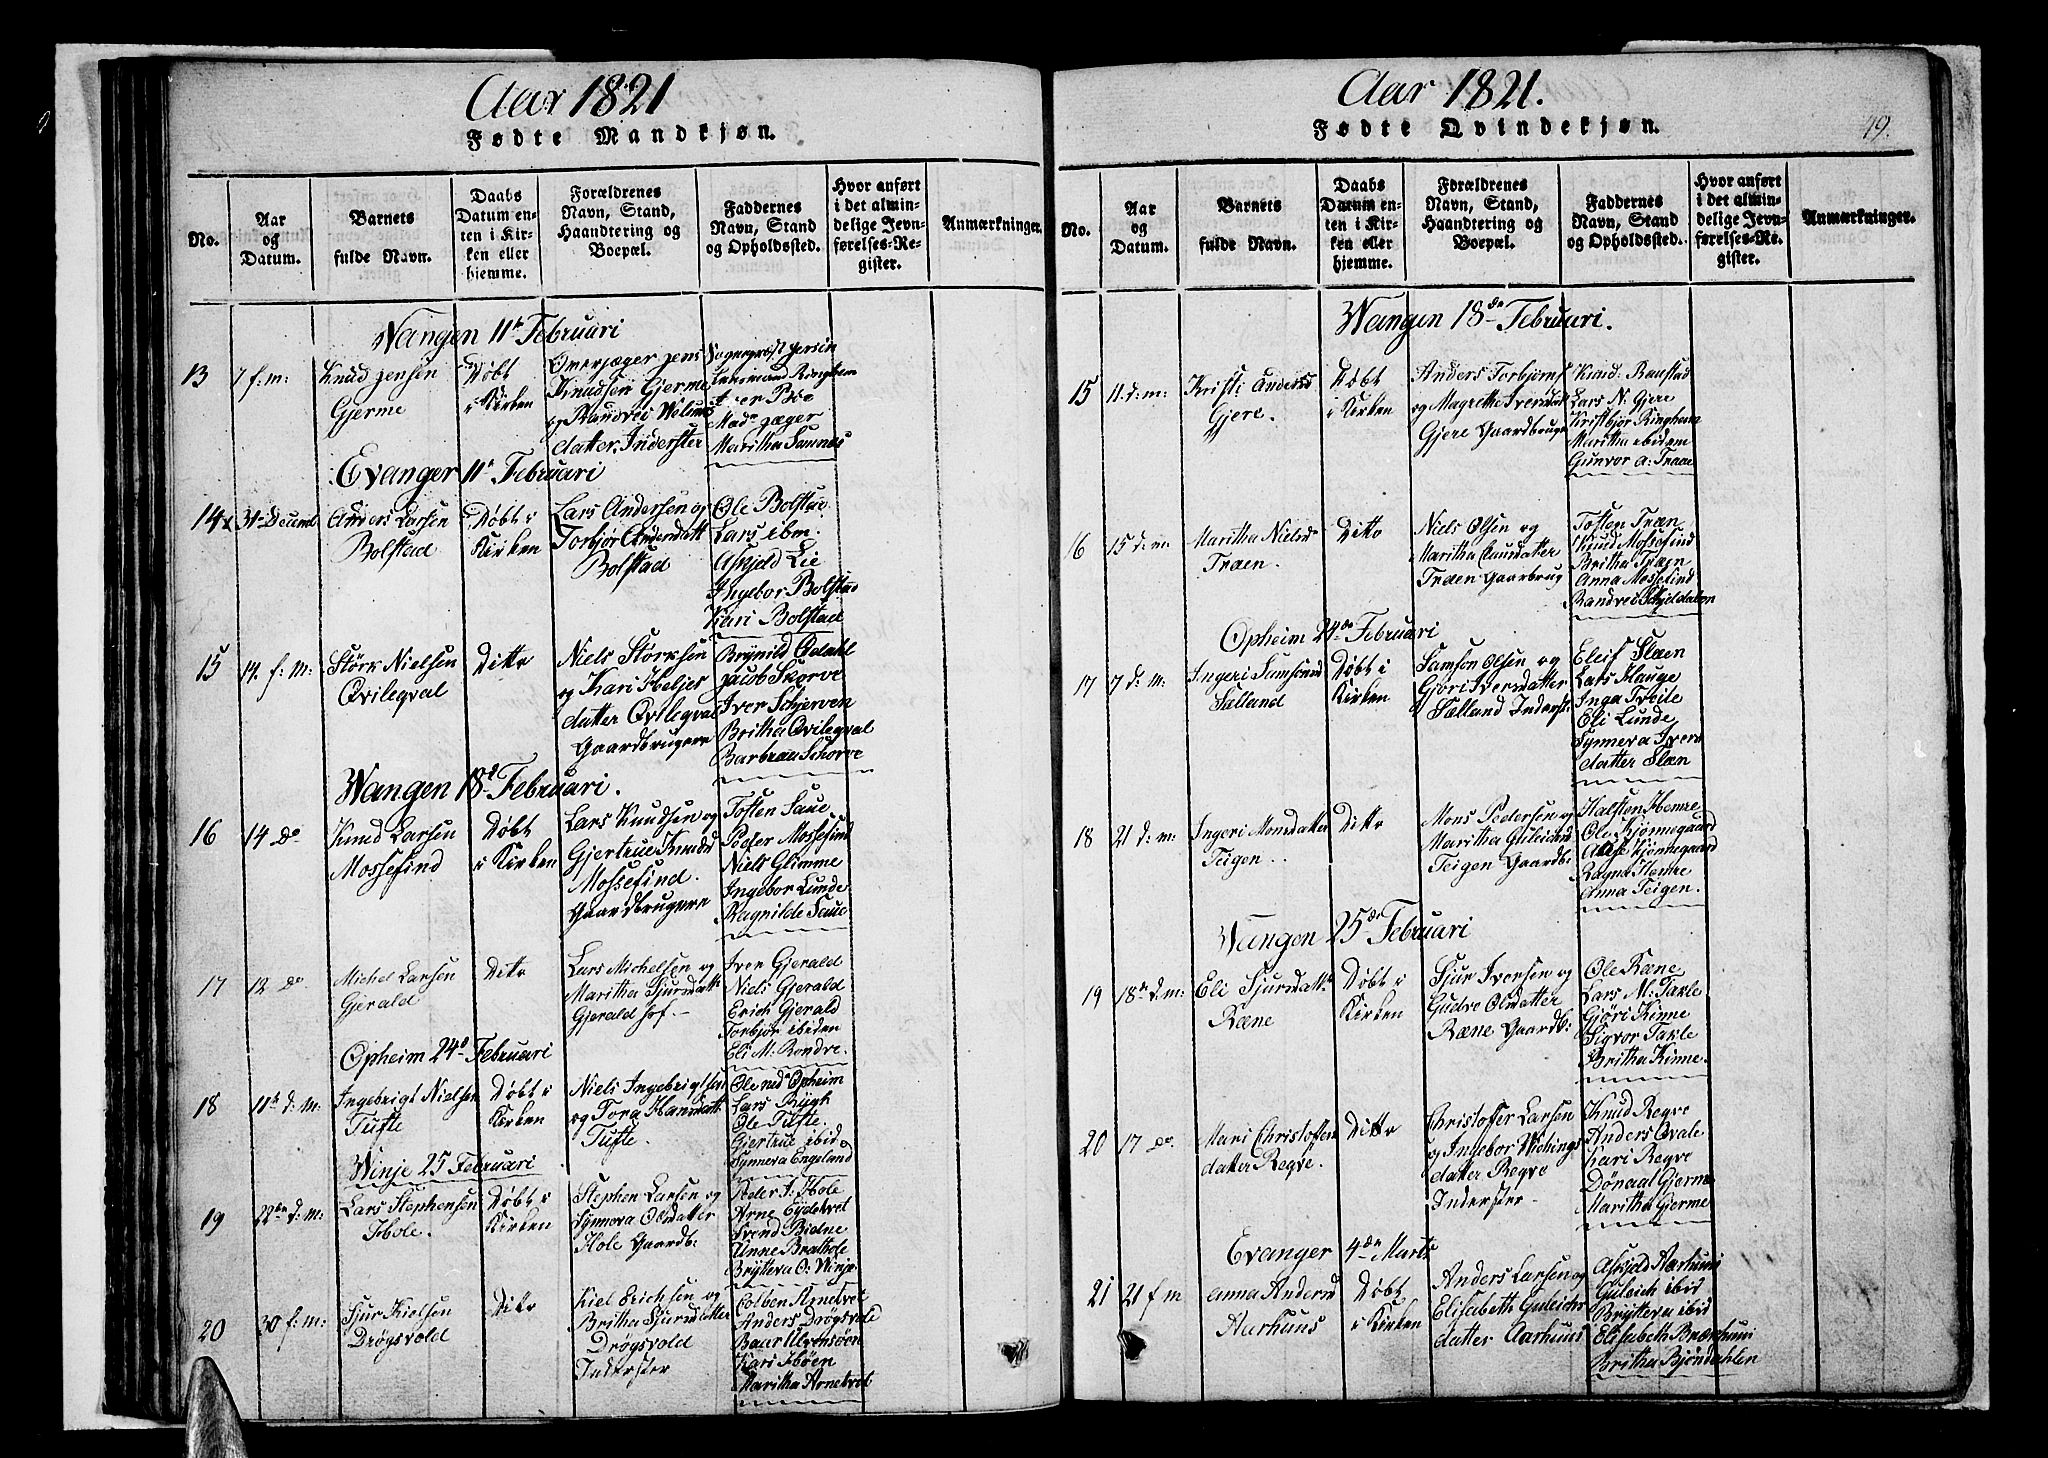 Aar 1821
Fødte Mandkjøn.
No.
Aar
og
Datum.
Barnets
fulde Navn.
Daabs
Datum en-
ten i Kir-
ken eller
hjemme.
Forældrenes
Navn, Stand,
Haandtering og
Boepæl.
Faddernes
Navn, Stand
og Opholdssted.
Hvor anført
i det almin-
delige Jevn-
førelses-Re-
gister.
Anmærkninger.
Wangen 11te Februari
13
7 f: m:
Knud Jensen
Gjerme
Døbt
i Kirken
Overjæger Jens
Knudsen Gjerme
og Randvei
datter Inderster
Sognepræst Jersin
Lensmand Ringheim
Peder Bøe
Madme Jæger
Maritha Saunes
Evanger 11te Februari
14
31te Decemb
Anders Larsen
Bolstad
Døbt i
Kirken
Lars Andersen og
Torbjør Andersdatt
Bolstad
Ole Bolstad
Lars ibm.
Askjeld Lie
Ingebor Bolstad
Kari Bolstad
15
14. f: M:
Størk Nielsen
Qvileqval
Ditto
Niels Størksen
og Kari Heljes
datter Qvileqval
Gaardbrugere
Brynild Odahl
Jacob Skorve
Iver Schjerven
Britha Qvileqval
Barbrau Schorve
Wangen 18de Februari.
16
14 Do
Knud Larsen
Mossefind
Døbt
i Kirken
Lars Knudsen og
Gjertrue Knuds
Mossefind.
Gaardbrugere
Tosten Saue
Peder Mossefind
Niels Glimme
Ingebor Lunde
Ragnilde Saue
17
12 Do
Michel Larsen
Gjerald
Ditto
Lars Michelsen og
Maritha Sjursdatt
Gjerald Hsf.
Iver Gjerald
Niels Gjerald
Erich Gjerald
Torbjør ibiden
Eli M: Rondve.
Opheim 24de Februari
18
11te d: m:
Ingebrigt Nielsen
Tufte
Døbt i
Kirken
Niels Ingebrigtsen
og Tora Hansdatt
Tufte.
Ole ned Opheim
Lars Bygh
Ole Tufte.
Gjertrue ibid
Synneva Engeland
Winje 25 Februari
19
22de d: m:
Lars Stephensen
Hole.
Døbt i
Kirken
Stephen Larsen og
Synneva Olsdatter
Hole Gaardb:
Peder I: Hole
Arne Eydetvet
Svend Bidne
Anne Brathole
Bryteva O: Winje
20
30 f: m:
Sjur Kielsen
Drøgsvold
Ditto
Kiel Erichsen og
Britha Sjursdatter
Drøgsvold
Inderster
Colben Arnetvet
Anders Drøgsvold
Baar Ulvensøen
Kari Hbøen
Maritha Arnetvet
Aar 1821.
Fødte Qvindekjøn.
49.
No.
Aar
og
Datum.
Barnets
fulde Navn.
Daabs
Datum en-
ten i Kir-
ken eller
hjemme.
Forældrenes
Navn, Stand,
Haandtering og
Boepæl.
Faddernes
Navn, Stand
og Opholdssted.
Hvor anført
i det almin-
delige Jevn-
førelses-Re-
gister.
Anmærkninger.
Wangen 18de Februari.
15
11. d: m:
Kristi Andersd
Gjere.
Døbt
i Kirken
Anders Torbjørns
og Magrethe Iversdatt
Gjere Gaardbruge
Kind: Ranstad
Lars N: Gjere
Kristbjør Ringheim
Maritha ibidem
Gunvor a: Traae
16
15 d: m:
Maritha Nielsd
Træen.
Ditto
Niels Olsen og
Maritha Clausdatter
Træen Gaardbrug
Tosten Træn
Knud Mossefind
Britha Træen
Anna Mossefind
Randvei Schjeldalen
Opheim 24de Februari
17
7 d: m:
Ingeri Samsonsd
Sælland
Døbt i
Kirken
Samson Olsen og
Gjøri Iversdatter
Sælland Inderst
Eleif Slæen
Lars Hauge
Inga Tveite
Eli Lunde
Synneva Ivers
datter Slæn
18
21 d: m:
Ingeri Monsdatter
Teigen.
Ditto
Mons Pedersen og
Maritha Guleichsd
Teigen Gaardb:
Halsten Hemre
Ole Kjønnegaard
Aase Kjønnegaard
Ragna Hemre
Anna Teigen.
Wangen 25de Februari
19
18de d: m:
Eli Sjursdatt
Ræne
Døbt i
Kirken
Sjur Iversen og
Gudve Olsdatter
Ræne Gaardb:
Ole Ræne
Lars M: Takle
Gjøri Kinne
Sigvor Takle
Britha Kinne.
20
17 Do.
Mari Christoffers
datter Regve.
Ditto
Christoffer Larsen
og Ingebor Wichings
datter Regve
Inderster.
Knud Regve
Anders Qvale
Kari Regve
Dønaal Gjerme
Maritha Gjerme
Evanger 4de Marts
21
21 f m
Anna Andersd
Aarhuus
Døbt
i Kirken
Anders Larsen og
Elisabeth Guleichs
datter Aarhuus
Askjeld Aarhuus
Guleich ibid
Bryteva ibid
Elisabeth Brækhuus
Britha Bjøndahlen